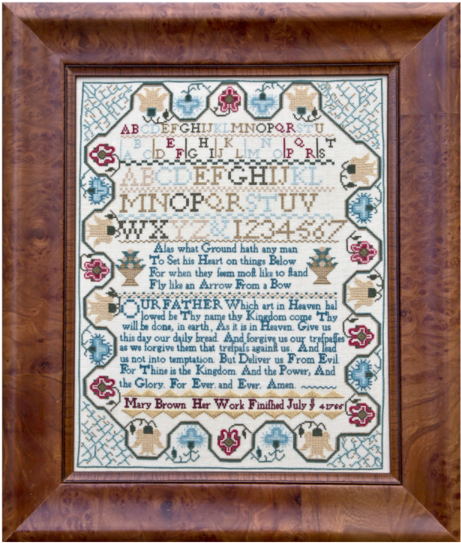 ABCDEFGHIJKLMNOPQRSTU
ABCDEFGHIJKLMNOPQRST
ABCDEFGHIJKL
MNOPQRSTUV
WXYZ&1234567
Alas what Ground hath any man
To Set his Heart on things Below
For when they ſeem moſt like to ſtand
Fly like an Arrow From a Bow
OUR FATHER Which art in Heaven hal
lowed be Thy name thy Kingdom come Thy
will be done, in earth, As it is in Heaven. Give us
this day our daily bread. And forgive us our treſpaſſes
as we forgive them that treſpaſs againſt us. And lead
us not into temptation. But Deliver us From Evil
For Thine is the Kingdom. And the Power, And
the Glory. For Ever, and Ever, Amen.
Mary Brown Her Work Finiſhed July yᵉ 4 1766